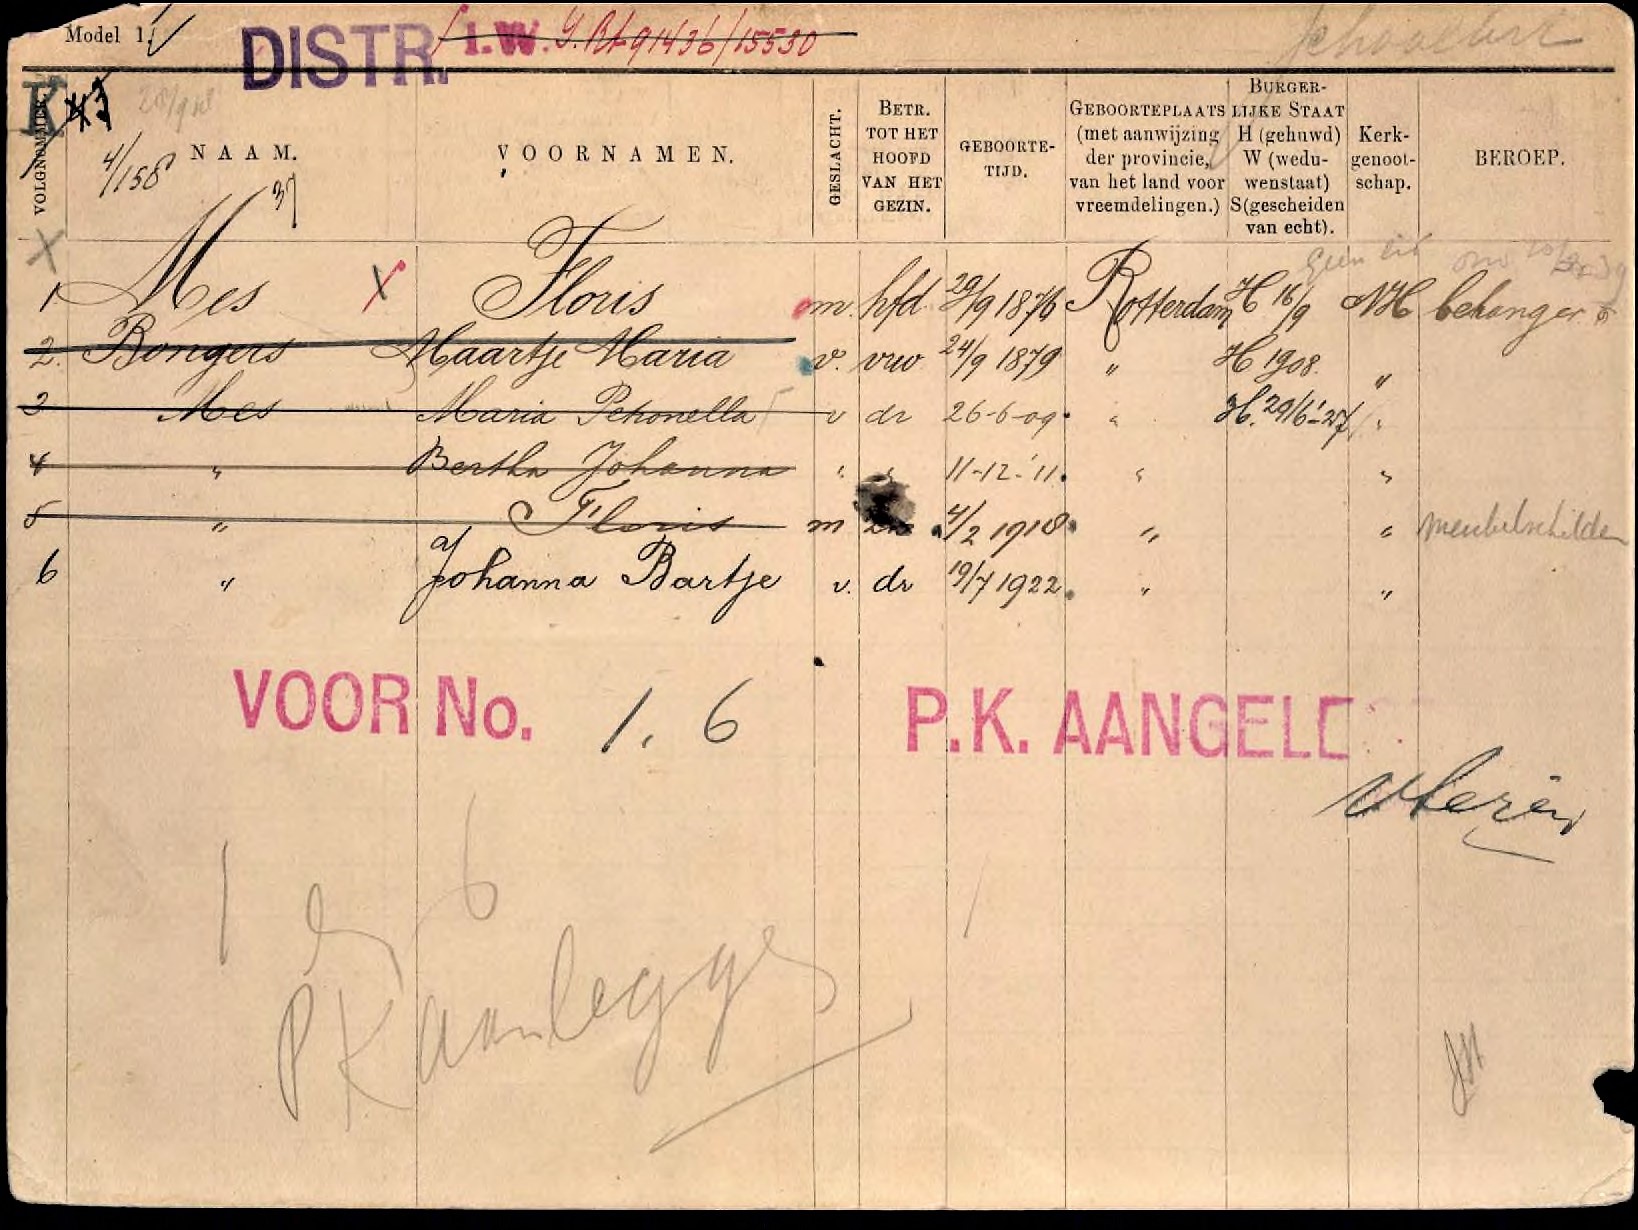 Model 1.
DISTR. I.W. G.Rt 91436/15530
K
28/9 18
4/158
37
VOLGNUMMER.
NAAM.
VOORNAMEN.
GESLACHT.
BETR. TOT HET HOOFD VAN HET GEZIN.
GEBOORTE-TIJD.
GEBOORTEPLAATS (met aanwijzing der provincie, van het land voor vreemdelingen.)
BURGER-LIJKE STAAT H (gehuwd) W (wedu-wenstaat) S (gescheiden van echt).
Kerk-genoot-schap.
BEROEP.
1 Mes Floris m. hfd 29/9 1876 Rotterdam H 16/9 NH behanger
2. Bongers Maartje Maria v. vrw 24/9 1879 " H 1908. "
3 Mes Maria Petronella v dr 26-6-09. " H. 29/6-'27 "
4 " Bertha Johanna " " 11-12-'11. " "
5 " Floris m zn 4/2 1918. " " meubelschilder
6 " Johanna Bartje v. dr 19/7 1922. " "
VOOR No. 1. 6 P.K. AANGELE
1 6
PK aanleggen